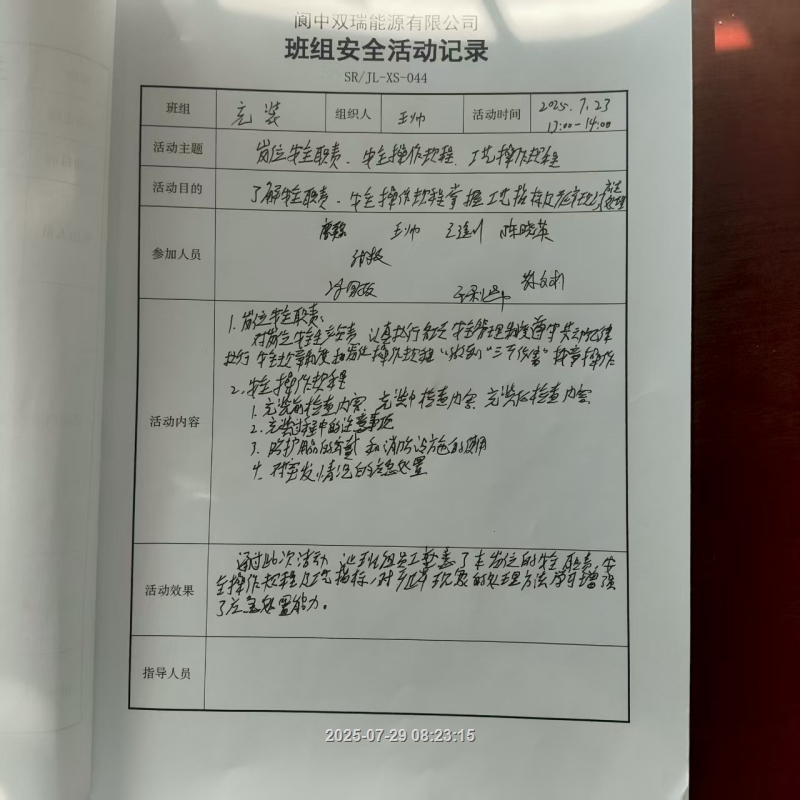 阆中双瑞能源有限公司
班组安全活动记录
SR/JL-XS-044
班组 充装 组织人 王帅 活动时间 2025.7.23
13:00-14:00
活动主题 岗位安全职责、安全操作规程、工艺操作规程
活动目的 了解安全职责、安全操作规程掌握工艺指标及异常现象应急处理
参加人员 王帅 陈晓英
活动内容
1.岗位安全职责:
对岗位安全生产负责 认真执行各项安全管理制度遵守劳动纪律
执行安全规章制度和岗位操作规程 做到"三不伤害"
2.安全操作规程
1.充装前检查内容 充装中检查内容 充装后检查内容
2.充装过程中的注意事项
3.防护用品的穿戴和消防设施的使用
4.对突发情况的应急处置
活动效果 通过此次活动 让班组员工熟悉了本岗位的安全职责,安
全操作规程及工艺指标,对异常现象的处理方法 增强
了应急处置能力。
指导人员
2025-07-29 08:23:15